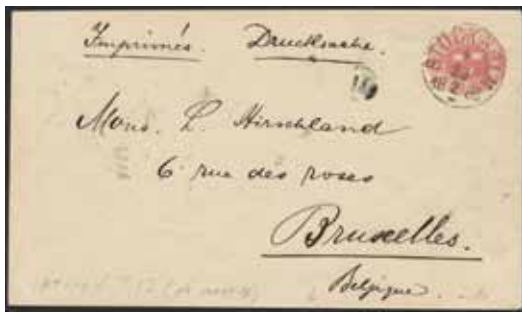 Imprimés. Drucksache.
Mons. L. Hirschland
6 rue des roses
Bruxelles.
Belgique.